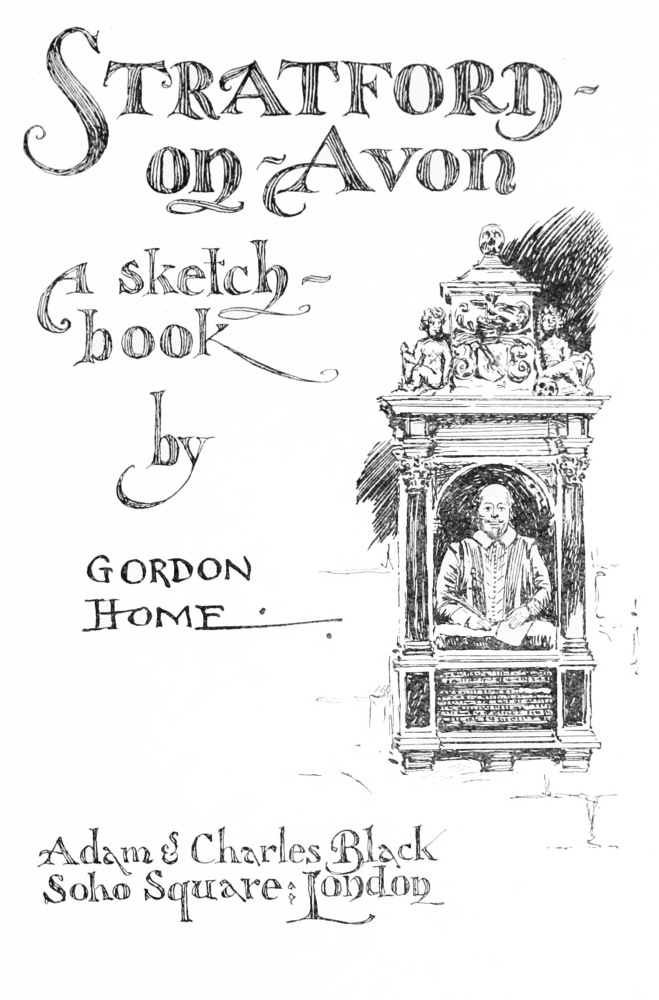 STRATFORD-
on-Avon
A sketch-
book
by
GORDON
HOME.
Adam & Charles Black
Soho Square: London